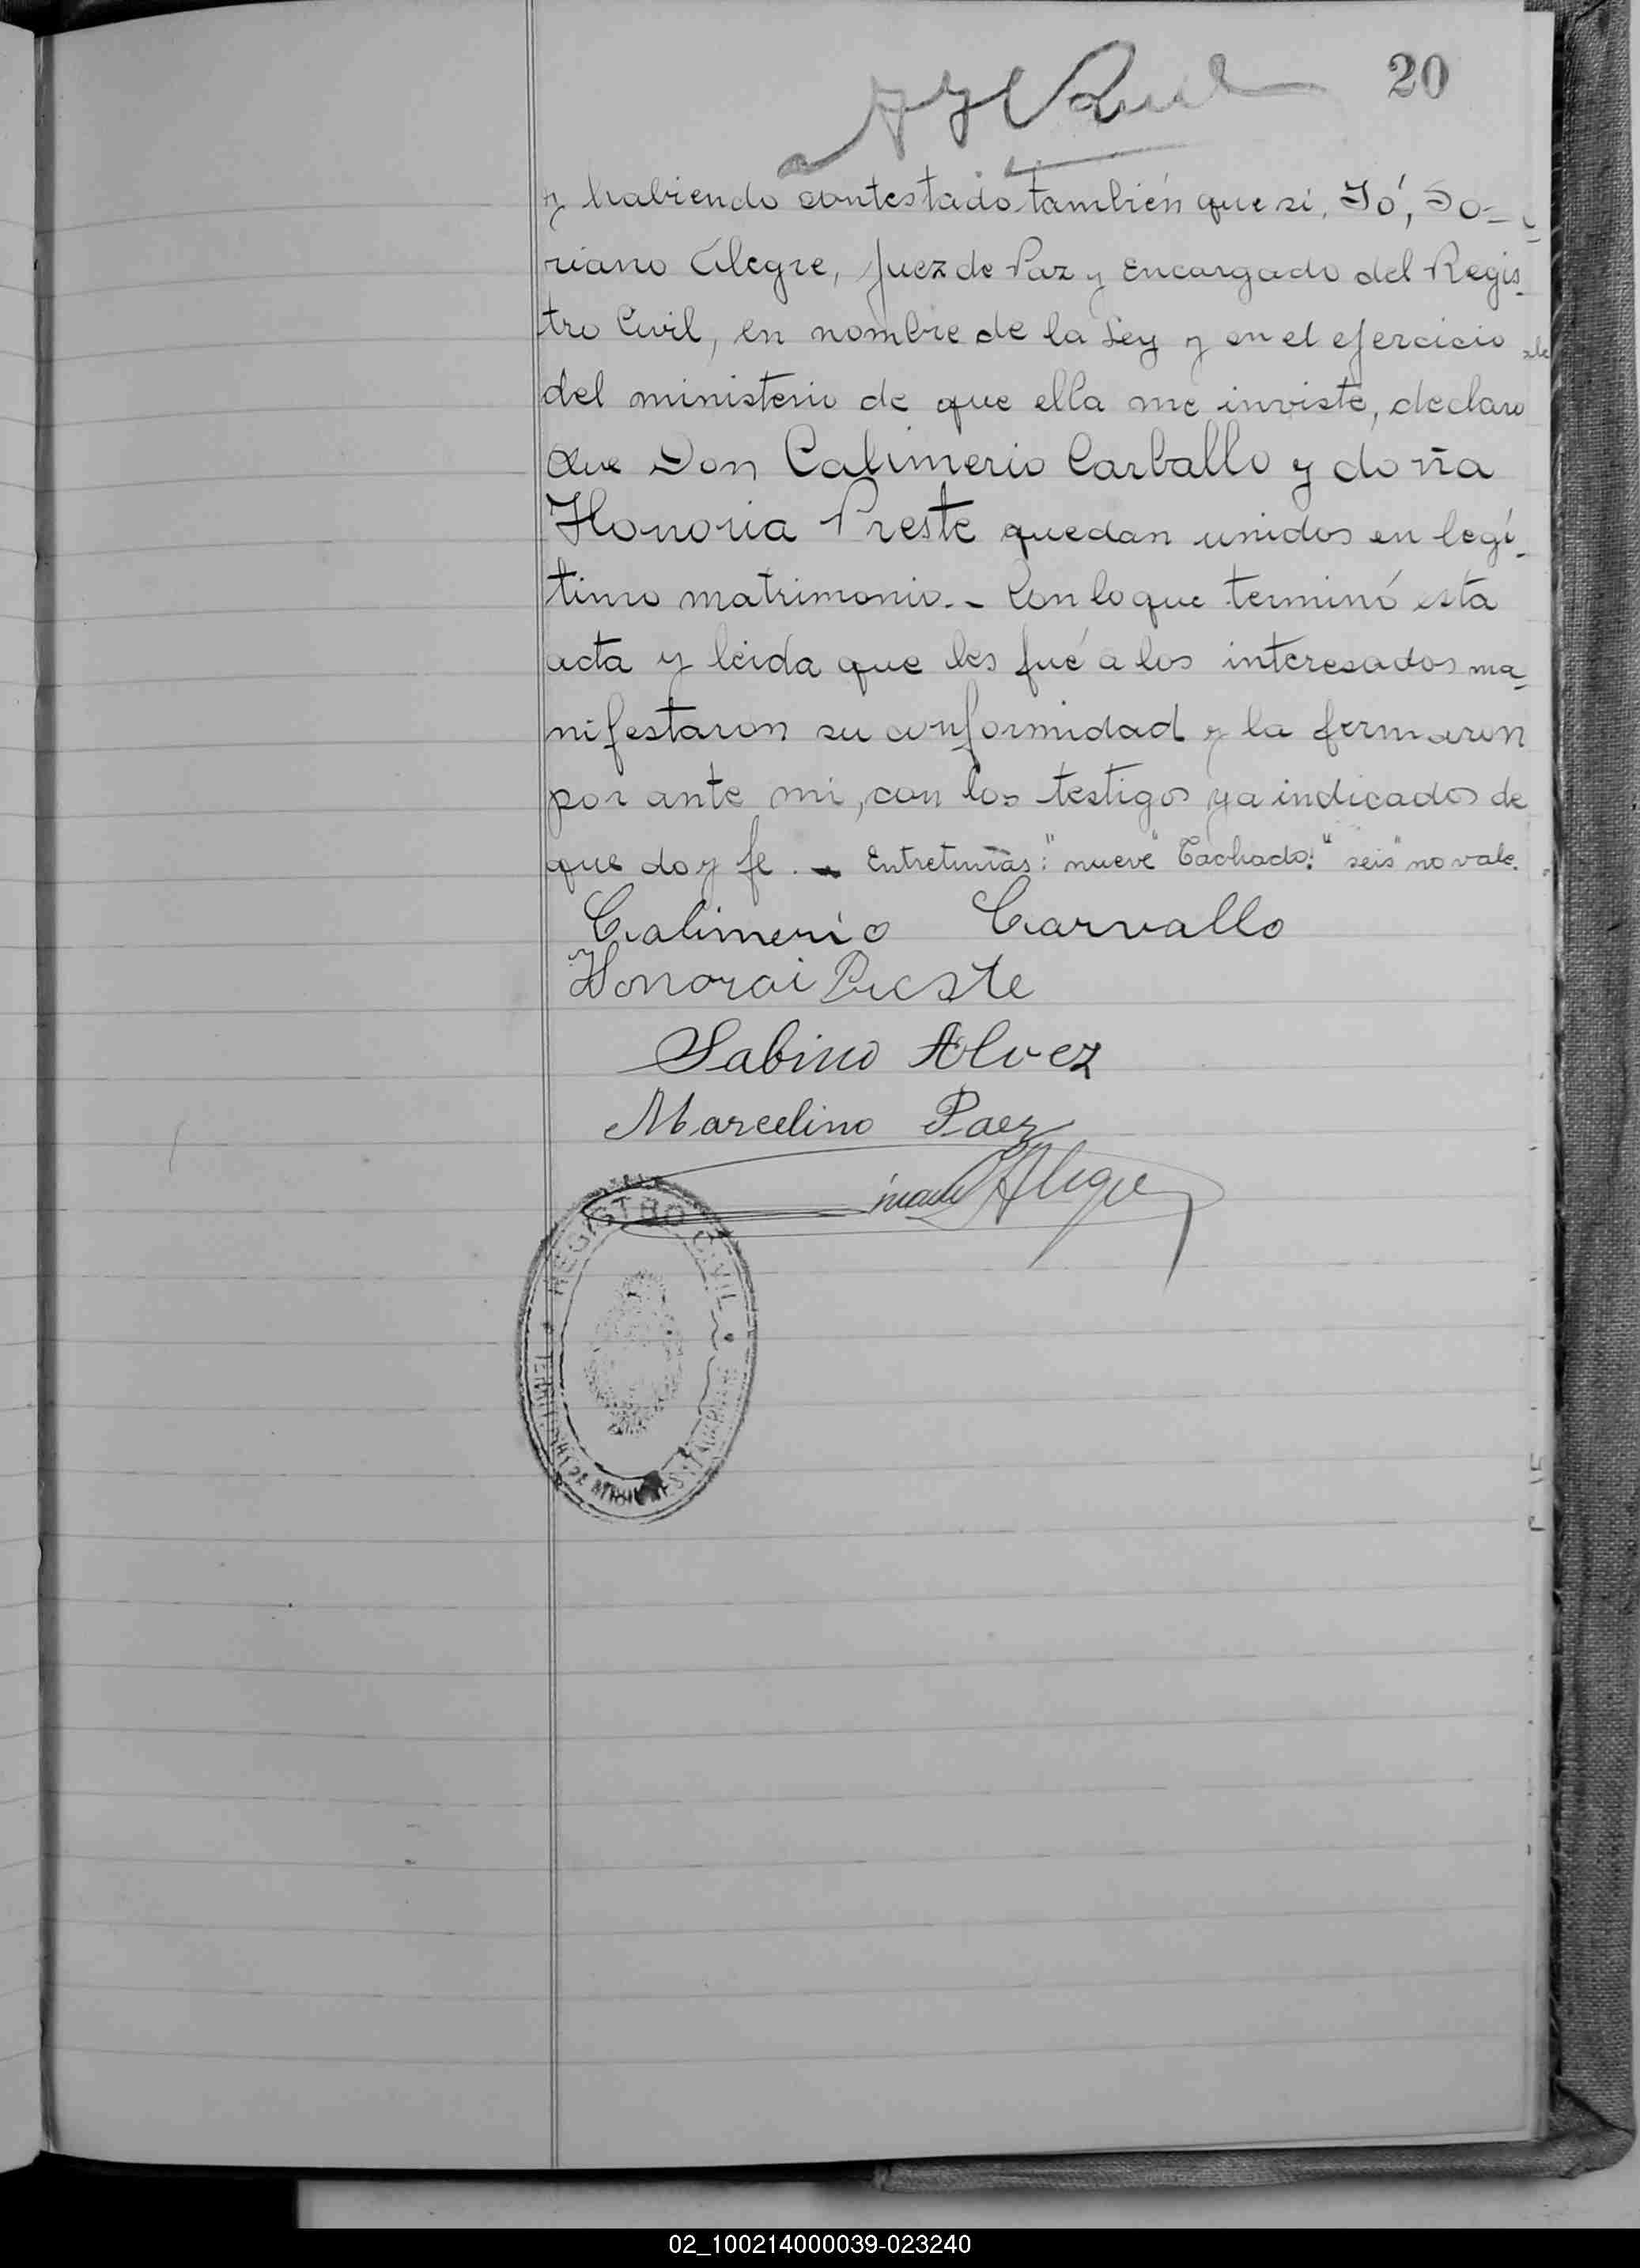 20
y habiendo contestado también que sí, Yó, Do-
riano Alegre, Juez de Paz y Encargado del Regis-
tro Civil, en nombre de la Ley y en el ejercicio
del ministerio de que ella me inviste, declaro
que Don Calimerio Carballo y doña
Honoria Preste quedan unidos en legí-
timo matrimonio.- Con lo que terminó esta
acta y leida que les fué a los interesados ma-
nifestaron su conformidad y la firmaron
por ante mi, con los testigos ya indicados de
que doy fe. - Entrelineas: "nueve" Tachado: "seis" no vale.
Calimerio Carvallo
Honorai Preste
Sabino Alvez
Marcelino Paez
Alegre
REGISTRO CIVIL
TERRITORIO DE MISIONES
02_100214000039-023240